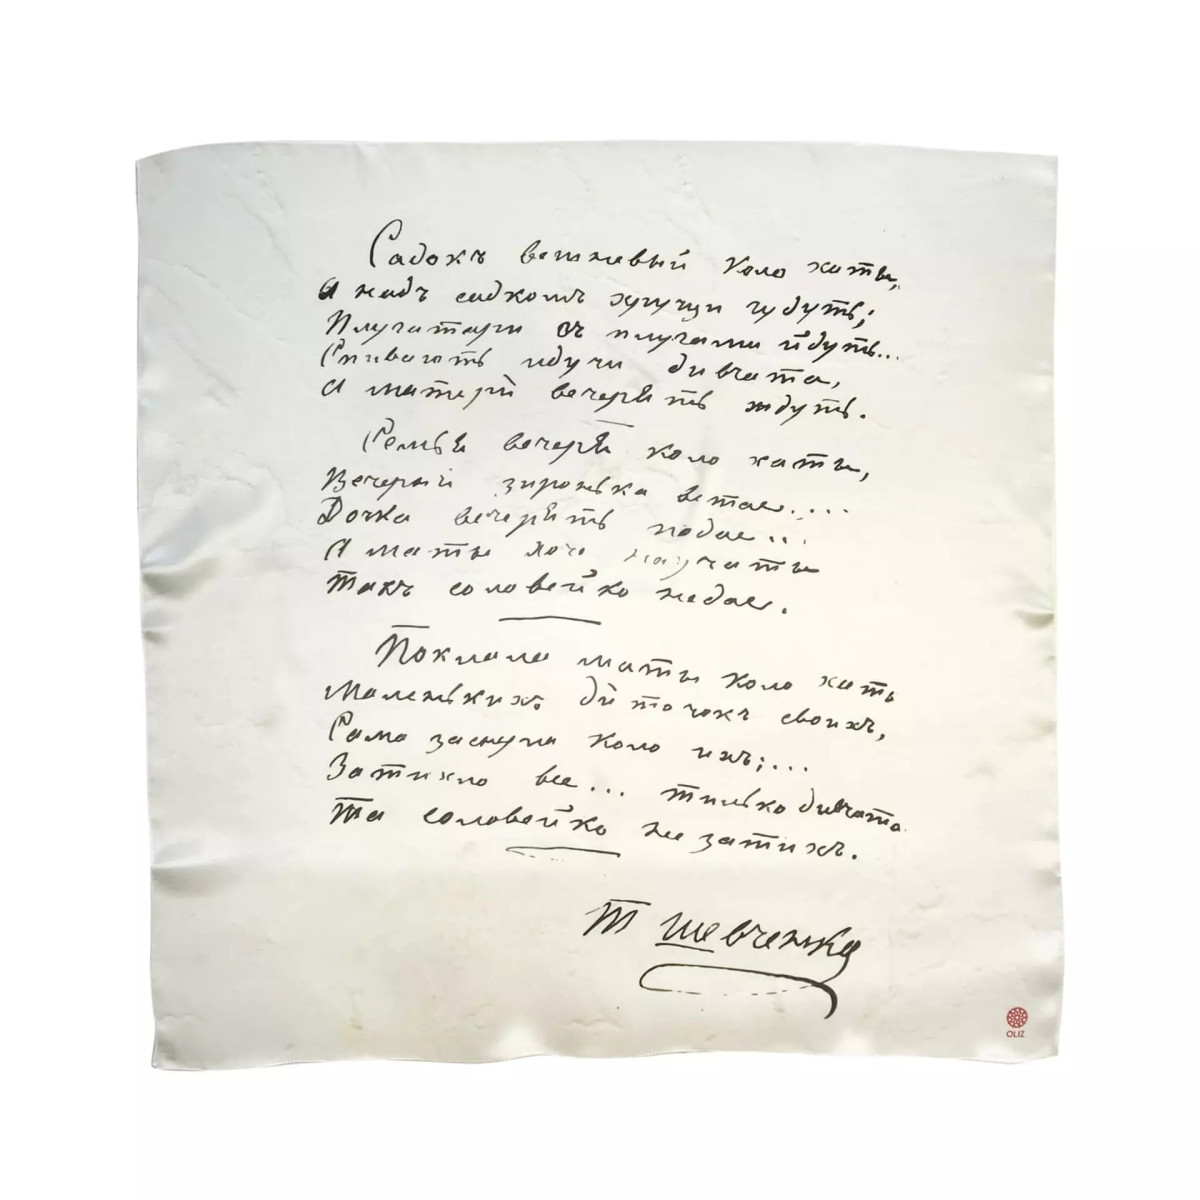 Садокъ вешневый коло хаты,
А надъ садкомъ хрущи гудуть;
Плугатари зъ плугами йдуть...
Спивають идучи дивчата,
А матери вечерять ждуть.
Семья вечеря коло хаты,
Вечерня зиронька встае....
Дочка вечерять подае...
А маты хоче научаты
Такъ соловейко недае.
Поклала маты коло хаты
Маленькихъ диточокъ своихъ,
Сама заснула коло ихъ;...
Затихло все... тилько дивчата
Та соловейко не затихъ.
Т Шевченко
OLIZ